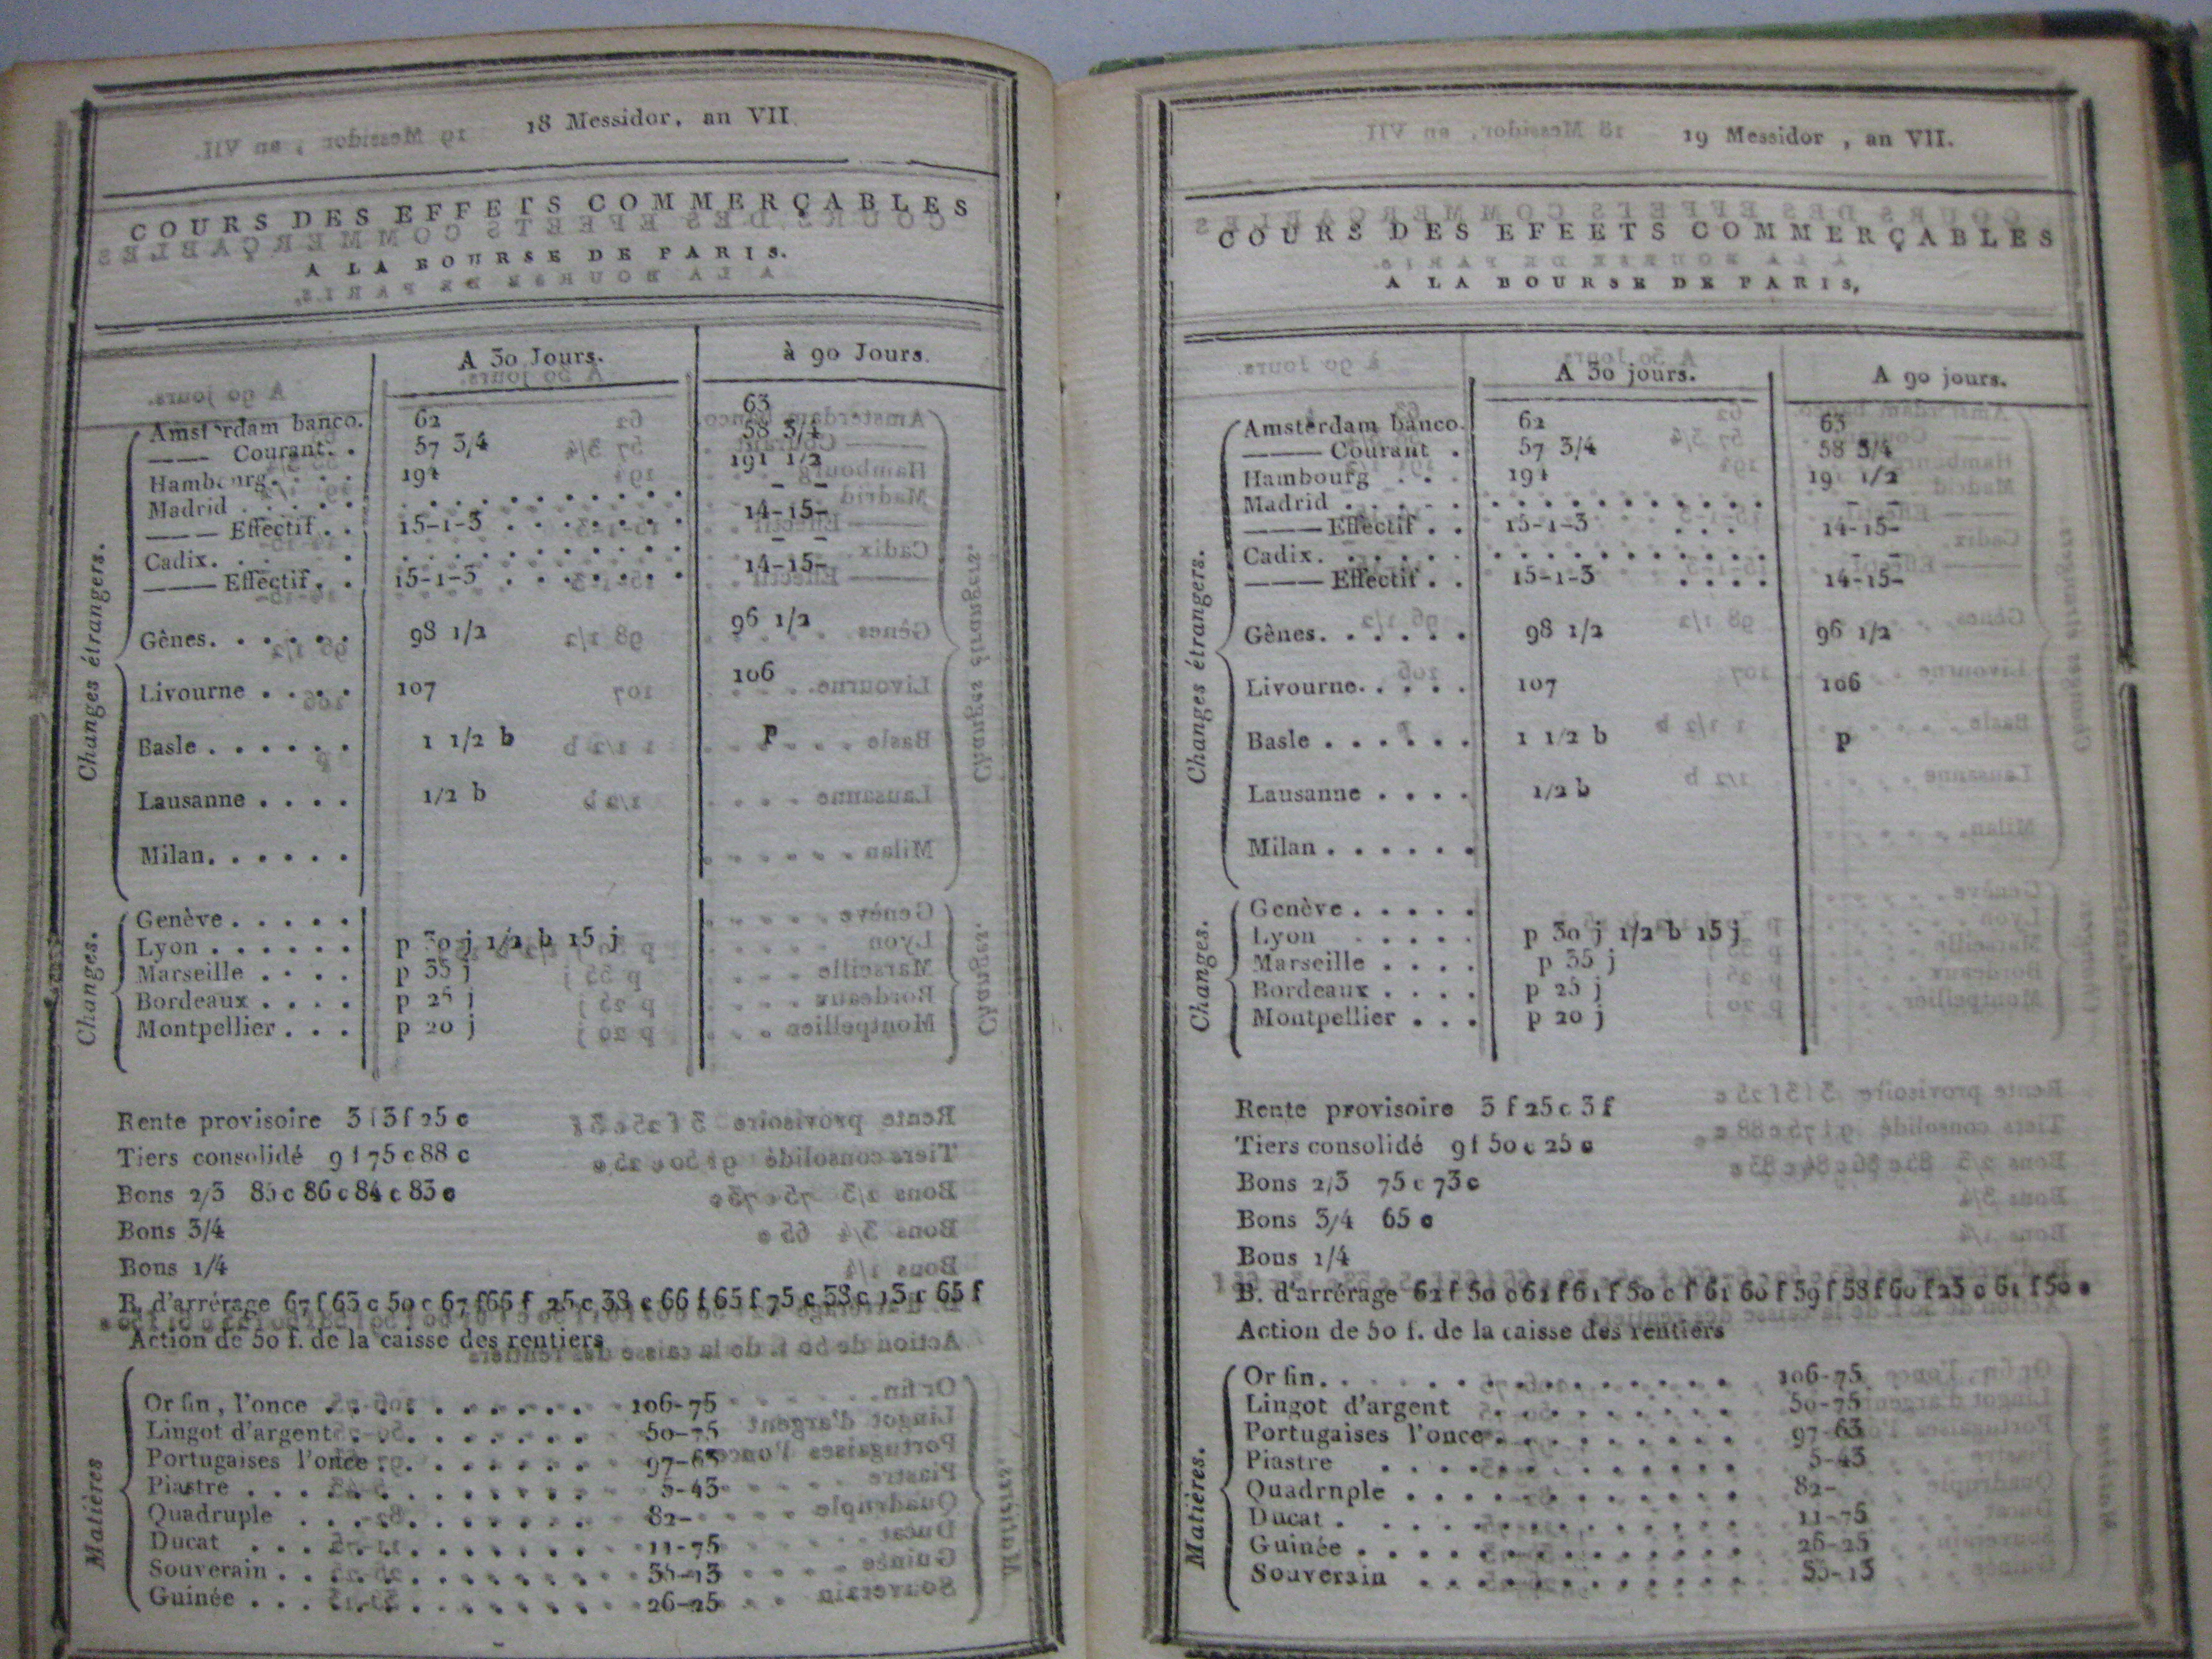 18 Messidor, an VII
COURS DES EFFETS COMMERÇABLES
A LA BOURSE DE PARIS.
A 30 Jours. à 90 Jours.
Changes étrangers.
Amsterdam banco. 62 63
—— Courant. . 57 3/4 58 3/4
Hambourg. . . . 191 1/2
Madrid . . . . . - -
—— Effectif . . 15-1-3 . . . . . . . 14-15-
Cadix. . . . . - -
—— Effectif. . 15-1-3 . . . . . . . 14-15-
Gênes. . . . . . 98 1/2 96 1/2
Livourne . . . . 107 106
Basle . . . . . . 1 1/2 b p
Lausanne . . . . 1/2 b
Milan. . . . . .
Changes.
Genève . . . . .
Lyon . . . . . . p 30 j 1/2 b 15 j
Marseille . . . . p 35 j
Bordeaux . . . . p 25 j
Montpellier . . . p 20 j
Rente provisoire 3 f 3 f 25 c
Tiers consolidé 9 f 75 c 88 c
Bons 2/3 85 c 86 c 84 c 83 c
Bons 3/4
Bons 1/4
B. d'arrérage 67 f 63 c 50 c 67 f 66 f 25 c 38 c 66 f 65 f 75 c 53 c 13 c 65 f
Action de 50 f. de la caisse des rentiers
Matières
Or fin, l'once . . . . . . . . . . 106-75
Lingot d'argent . . . . . . . . . 50-75
Portugaises l'once . . . . . . . . 97-63
Piastre . . . . . . . . . . . . . 5-43
Quadruple . . . . . . . . . . . 82-
Ducat . . . . . . . . . . . . . 11-75
Souverain . . . . . . . . . . . .
Guinée . . . . . . . . . . . . . 26-25
19 Messidor , an VII.
COURS DES EFEETS COMMERÇABLES
A LA BOURSE DE PARIS,
A 30 jours. A 90 jours.
Changes étrangers.
Amsterdam banco. 62 63
—— Courant . 57 3/4 58 3/4
Hambourg . . . 19 1/2
Madrid . . . . . - -
—— Effectif . . 15-1-3 . . . 14-15-
Cadix. . . . . . - -
—— Effectif . . 15-1-3 . . . . 14-15-
Gênes. . . . . . 98 1/2 96 1/2
Livourne. . . . . 107 106
Basle . . . . . . 1 1/2 b p
Lausanne . . . . 1/2 b
Milan . . . . . .
Changes.
Genève . . . . .
Lyon . . . . . p 30 j 1/2 b 15 j
Marseille . . . . p 35 j
Bordeaux . . . . p 25 j
Montpellier . . . p 20 j
Rente provisoire 3 f 25 c 3 f
Tiers consolidé 9 f 50 c 25 c
Bons 2/3 75 c 73 c
Bons 3/4 65 c
Bons 1/4
B. d'arrérage 62 f 50 c 62 f 61 f 50 c f 61 60 f 59 f 58 f 60 f 25 c 61 f 50 c
Action de 50 f. de la caisse des rentiers
Matières.
Or fin. . . . . . . . . . . . . . 106-75
Lingot d'argent . . . . . . . . . 50-75
Portugaises l'once . . . . . . . . 97-63
Piastre . . . . . . . . . . . . . 5-43
Quadrnple . . . . . . . . . . . 82-
Ducat . . . . . . . . . . . . . 11-75
Guinée . . . . . . . . . . . . . 26-25
Souverain . . . . . . . . . . . .